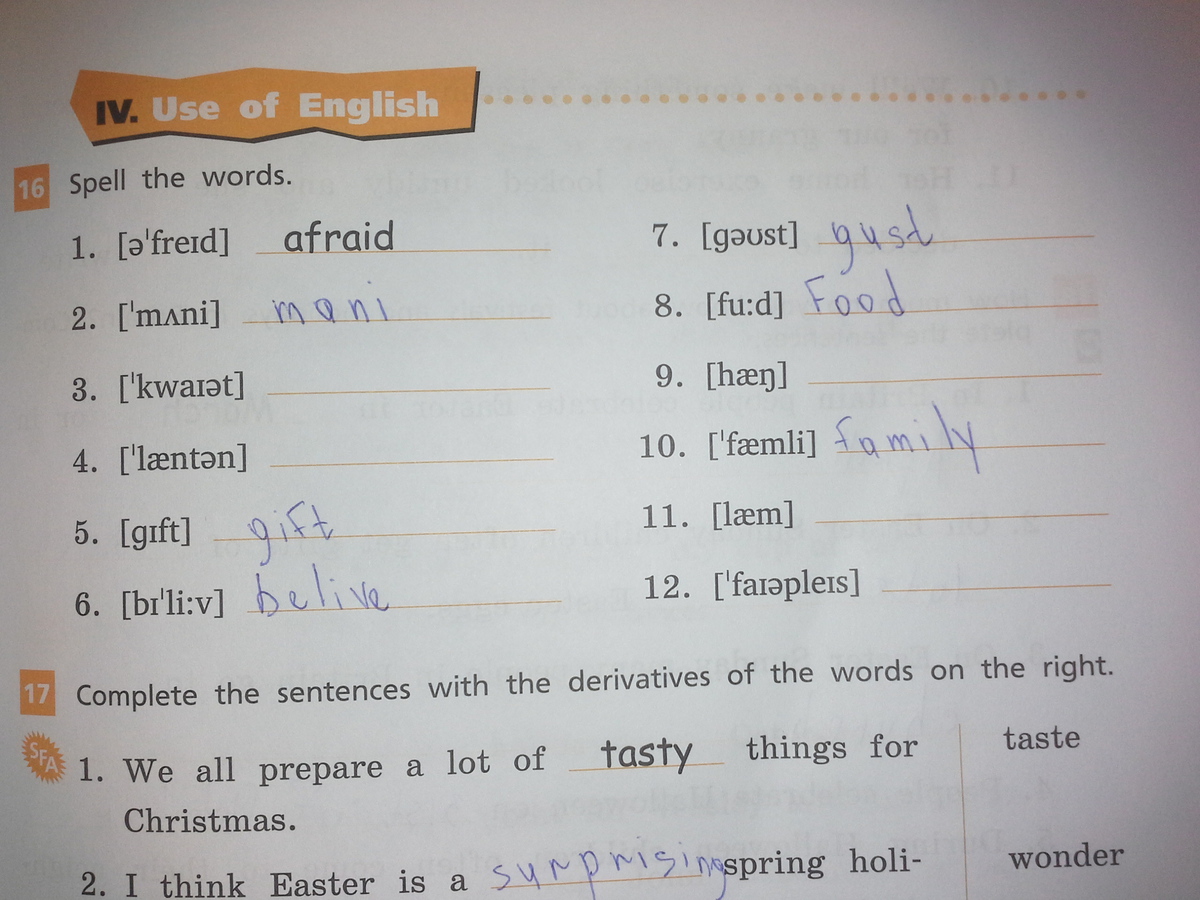 IV. Use of English
16 Spell the words.
1. [ə'freɪd] afraid
2. ['mʌni] mani
3. ['kwaɪət]
4. ['læntən]
5. [gɪft] gift
6. [bɪ'li:v] belive
7. [gəʊst] gust
8. [fu:d] Food
9. [hæŋ]
10. ['fæmli] family
11. [læm]
12. ['faɪəpleɪs]
17 Complete the sentences with the derivatives of the words on the right.
SFA
1. We all prepare a lot of tasty things for taste
Christmas.
2. I think Easter is a surprising spring holi- wonder